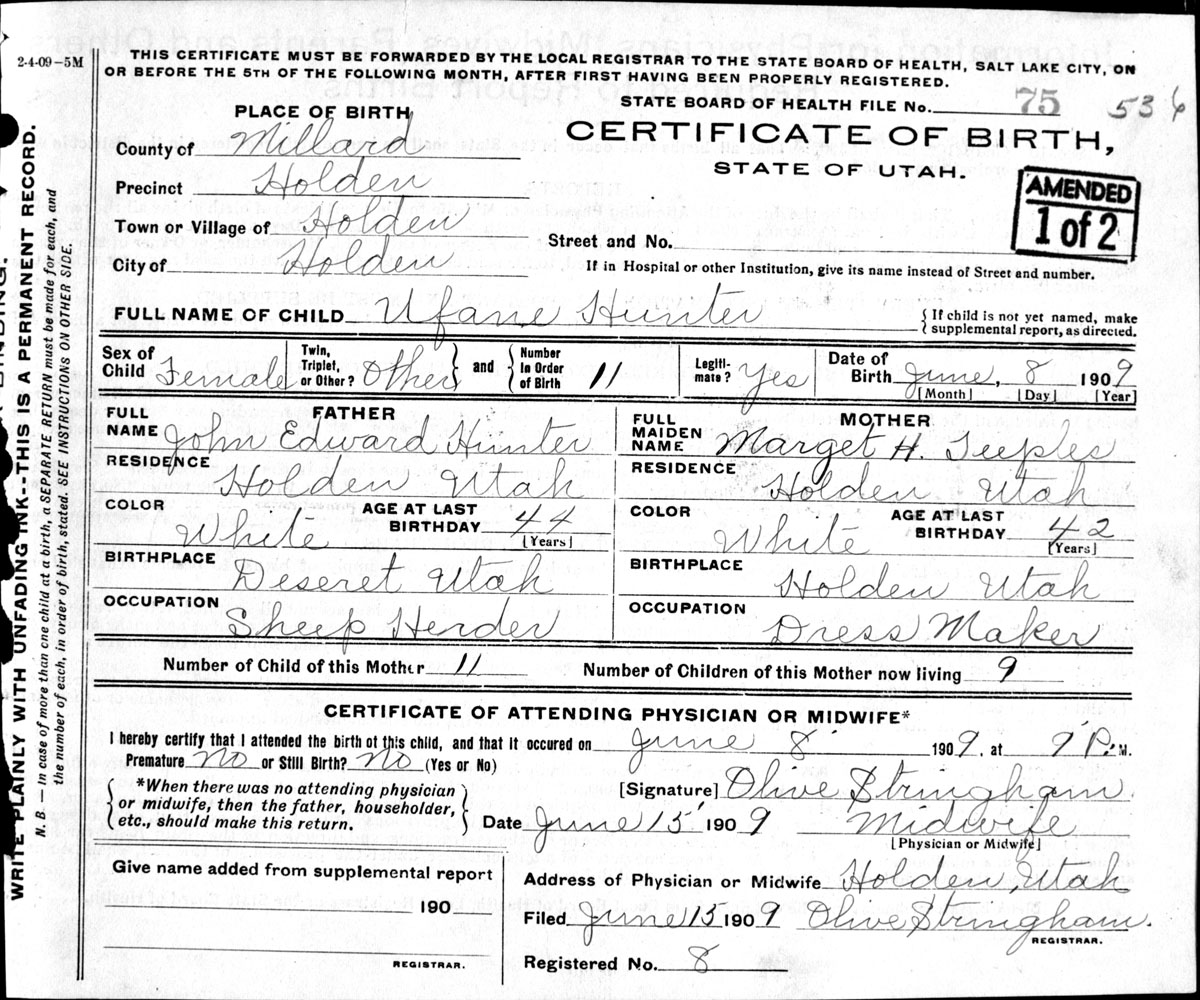 2-4-09-5M
THIS CERTIFICATE MUST BE FORWARDED BY THE LOCAL REGISTRAR TO THE STATE BOARD OF HEALTH, SALT LAKE CITY, ON
OR BEFORE THE 5TH OF THE FOLLOWING MONTH, AFTER FIRST HAVING BEEN PROPERLY REGISTERED.
STATE BOARD OF HEALTH FILE No. 75 536
PLACE OF BIRTH
CERTIFICATE OF BIRTH,
STATE OF UTAH.
AMENDED
1 of 2
County of Millard
Precinct Holden
Town or Village of Holden
City of Holden
Street and No.
If in Hospital or other Institution, give its name instead of Street and number.
FULL NAME OF CHILD Ufane Hunter
{If child is not yet named, make
supplemental report, as directed.
Sex of Child Female Twin, Triplet, or Other? Other } and { Number in Order of Birth 11 Legiti-mate? Yes Date of Birth June, 8 1909
[Month] [Day] [Year]
FATHER
FULL NAME John Edward Hunter
RESIDENCE Holden Utah
COLOR White AGE AT LAST BIRTHDAY 44
[Years]
BIRTHPLACE Deseret Utah
OCCUPATION Sheep Herder
MOTHER
FULL MAIDEN NAME Marget H. Teeples
RESIDENCE Holden Utah
COLOR White AGE AT LAST BIRTHDAY 42
[Years]
BIRTHPLACE Holden Utah
OCCUPATION Dress Maker
Number of Child of this Mother 11 Number of Children of this Mother now living 9
CERTIFICATE OF ATTENDING PHYSICIAN OR MIDWIFE*
I hereby certify that I attended the birth of this child, and that it occured on June 8 1909, at 9 P. M.
Premature No or Still Birth? No (Yes or No)
*When there was no attending physician
or midwife, then the father, householder,
etc., should make this return.
[Signature] Olive Stringham
Date June 15, 1909 Midwife
[Physician or Midwife]
Give name added from supplemental report
190
REGISTRAR.
Address of Physician or Midwife Holden, Utah
Filed June 15 1909 Olive Stringham.
REGISTRAR.
Registered No. 8
WRITE PLAINLY WITH UNFADING INK--THIS IS A PERMANENT RECORD.
N. B. — In case of more than one child at a birth, a SEPARATE RETURN must be made for each, and
the number of each, in order of birth, stated. SEE INSTRUCTIONS ON OTHER SIDE.
BINDING.